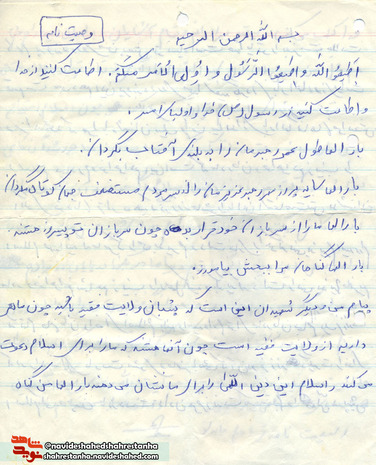 وصیت نامه
بسم الله الرحمن الرحیم
اطیعوا الله و اطیعوا الرسول و اولی الامر منکم. اطاعت کنید از خدا
و اطاعت کنید از رسول خدا و اولیای امر.
بار الها طول عمر رهبرمان را به بلندی آفتاب بگردان.
بار الها سایه رهبر عزیزمان را از سر مردم مستضعف جهان کوتاه مگردان
بار الها ما را از سربازان خود قرار بده چون سربازان تو پیروز هستند
بار الها گناهان مرا ببخش بیامرز.
پیام من و دیگر شهیدان این است که پشتیبان ولایت فقیه باشید چون ما هر
داریم از ولایت فقیه است چون آنها هستند که ما را برای اسلام دعوت
می کنند و اسلام این دین الهی را برای ما نشان می دهند بار الها من گناه
نوید شاهد
@navideshahedshahrestanha
shahrestanha.navideshahed.com